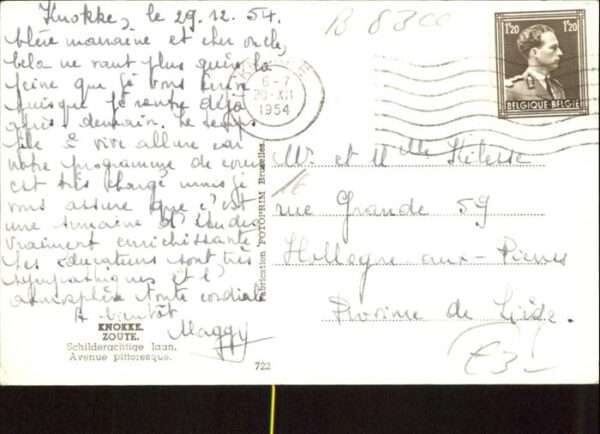 Knokke, le 29.12.54.
Chère marraine et cher oncle,
Cela ne vaut plus guère la
peine que je vous écrive
puisque je rentre déjà
après demain. Le temps
file à vive allure car
notre programme de cours
est très chargé mais je
vous assure que c'est
une semaine d'études
vraiment enrichissante
Les orateurs sont très
sympathiques et l'
atmosphère toute cordiale
A bientôt
Maggy
KNOKKE.
ZOUTE.
Schilderachtige laan.
Avenue pittoresque.
722
Fabrication FOTOPRIM Bruxelles
B 8300
6-7
1954
1F20 1F20
BELGIQUE-BELGIE
Mr et Mlle
rue Grande 59
Hollogne aux-Pierres
Province de Liège.